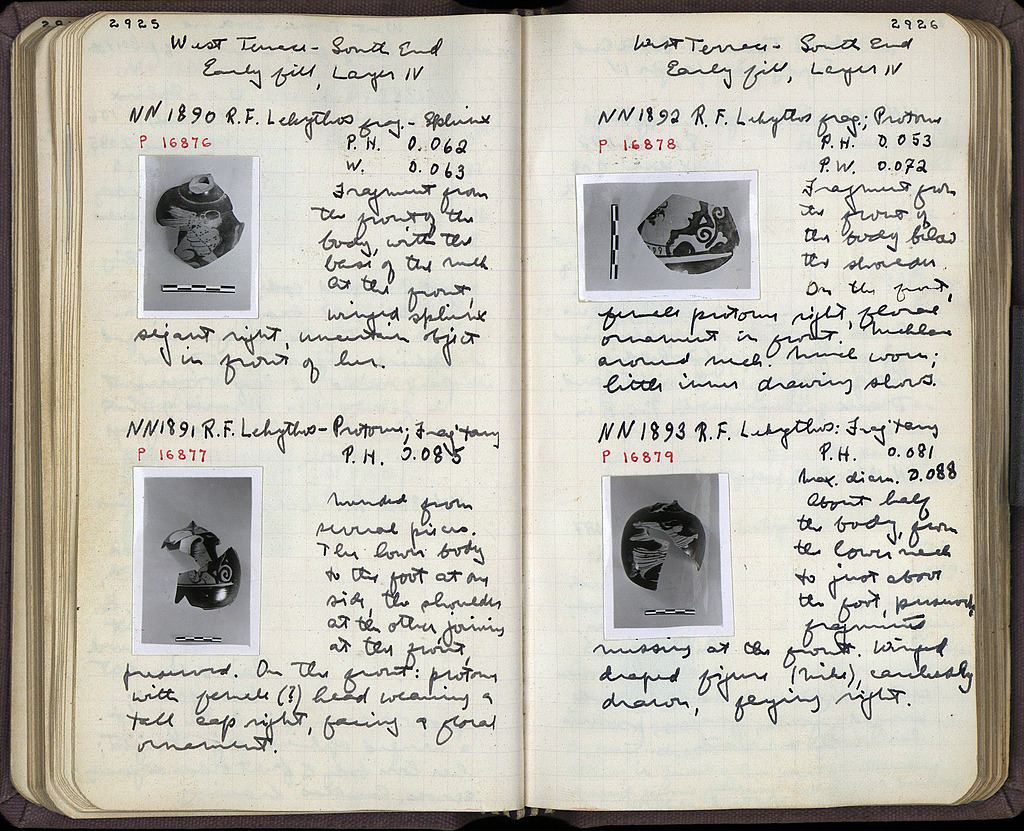 2925
West Terrace - South End
Early fill, Layer IV
NN 1890 R.F. Lekythos frag. - Sphinx
P 16876
P.H. 0.062
W. 0.063
Fragment from
the front of the
body, with the
base of the neck
at the front,
winged sphinx
sejant right, uncertain object
in front of her.
NN 1891 R.F. Lekythos - Protome; Frag'tary
P 16877
P.H. 0.085
Mended from
several pieces.
The lower body
to the foot at one
side, the shoulder
at the other joining
at the front,
preserved. On the front: protome
with female (?) head wearing a
tall cap right, facing a floral
ornament.
2926
West Terrace - South End
Early fill, Layer IV
NN 1892 R.F. Lekythos frag; Protome
P 16878
P.H. 0.053
P.W. 0.072
Fragment from
the front of
the body below
the shoulder.
On the front,
female protome right, floral
ornament in front. Necklace
around neck. Much worn;
little inner drawing shows.
NN 1893 R.F. Lekythos: Frag'tary
P 16879
P.H. 0.081
Max. diam. 0.088
About half
the body, from
the lower neck
to just above
the foot, preserved,
fragments
missing at the front. Winged
draped figure (Nike), carelessly
drawn, flying right.